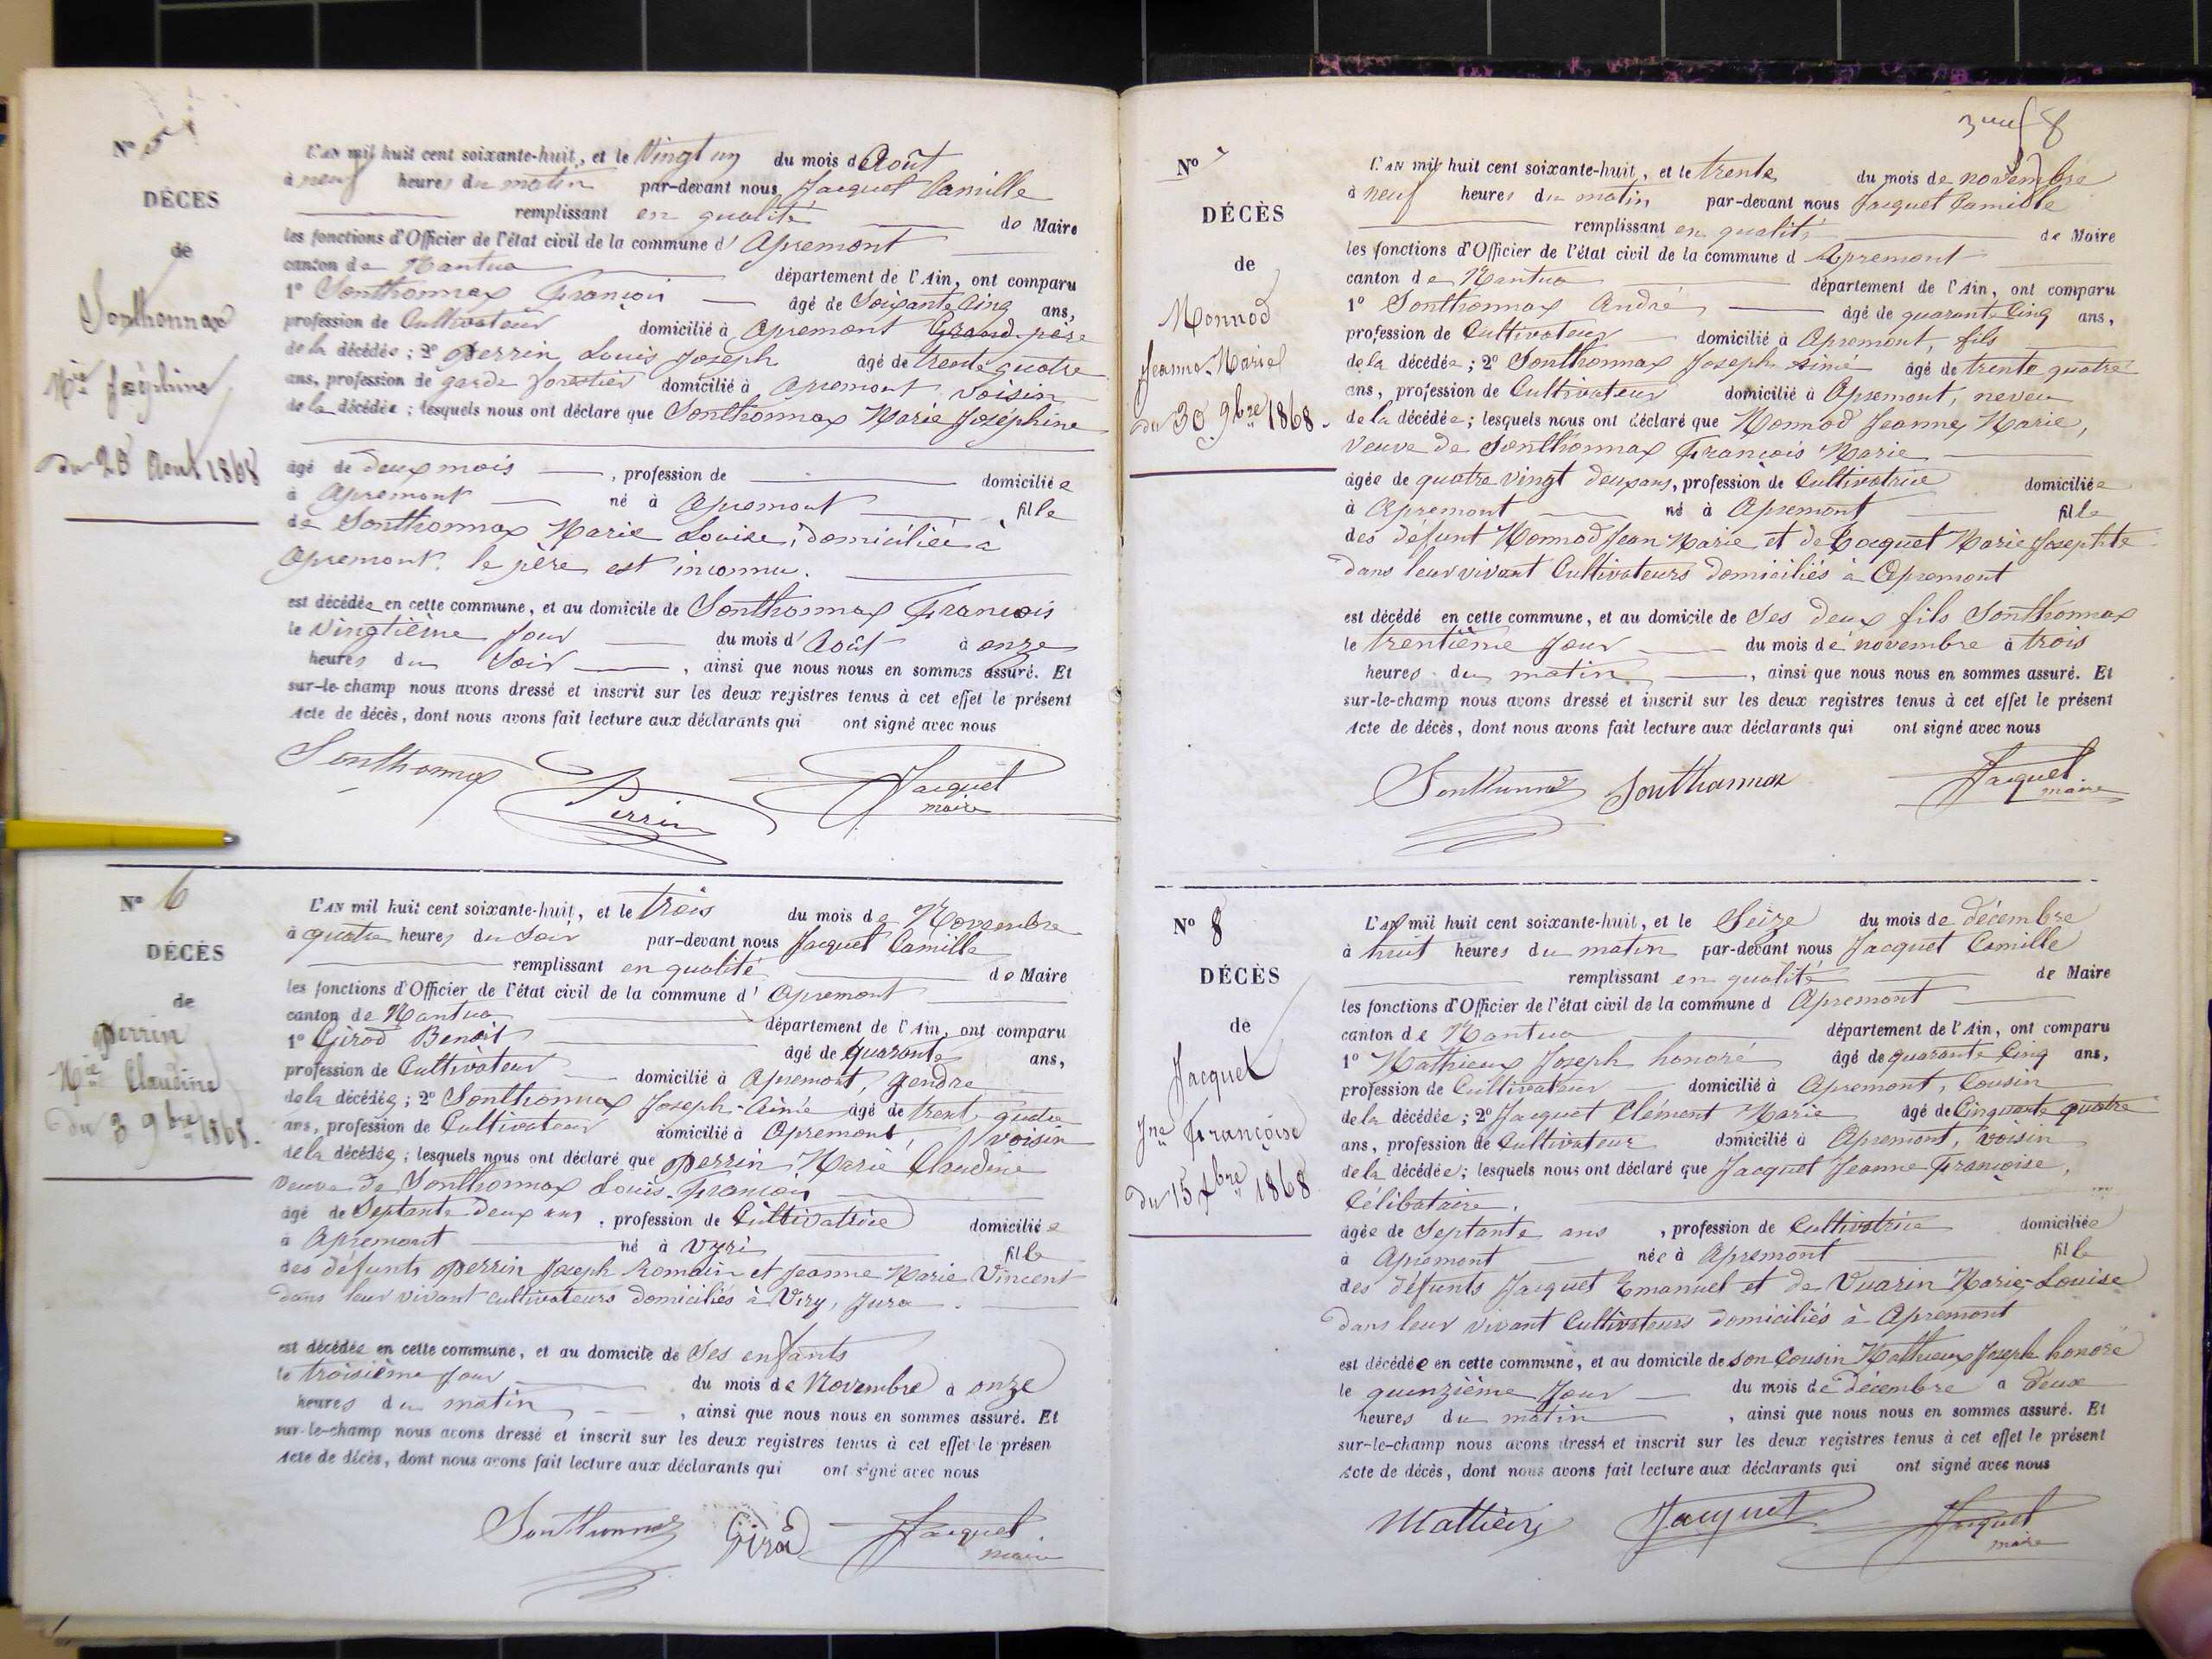 N° 5
DÉCÈS
de
Sonthonnax
Mie Joséphine
du 20 Aout 1868
L'AN mil huit cent soixante-huit, et le Vingt un du mois d'Août
à neuf heures du matin par-devant nous Jacquet Camille
remplissant en qualité de Maire
les fonctions d'Officier de l'état civil de la commune d'Apremont
canton de Nantua département de l'Ain, ont comparu
1° Sonthonnax François âgé de Soixante Cinq ans,
profession de Cultivateur domicilié à Apremont Grand-père
de la décédée ; 2° Perrin Louis Joseph âgé de trente quatre
ans, profession de garde forestier domicilié à Apremont voisin
de la décédée ; lesquels nous ont déclaré que Sonthonnax Marie Joséphine
âgé de deux mois , profession de domiciliée
à Apremont né à Apremont fille
de Sonthonnax Marie Louise, domiciliée à
Apremont. le père est inconnu.
est décédée en cette commune, et au domicile de Sonthonnax François
le Vingtième Jour du mois d'Août à onze
heures du Soir , ainsi que nous nous en sommes assuré. Et
sur-le-champ nous avons dressé et inscrit sur les deux registres tenus à cet effet le présent
Acte de décès, dont nous avons fait lecture aux déclarants qui ont signé avec nous
Sonthonnax Perrin Jacquet
maire
N° 6
DÉCÈS
de
Perrin
Mie Claudine
du 3 9bre 1868.
L'AN mil huit cent soixante-huit, et le trois du mois de Novembre
à quatre heures du Soir par-devant nous Jacquet Camille
remplissant en qualité de Maire
les fonctions d'Officier de l'état civil de la commune d'Apremont
canton de Nantua département de l'Ain, ont comparu
1° Girod Benoit âgé de quarante ans,
profession de Cultivateur domicilié à Apremont, gendre
de la décédée ; 2° Sonthonnax Joseph-Aimé âgé de trente quatre
ans, profession de Cultivateur domicilié à Apremont, voisin
de la décédée ; lesquels nous ont déclaré que Perrin Marie Claudine
veuve de Sonthonnax Louis-François
âgé de Septante deux ans , profession de Cultivatrice domiciliée
à Apremont né à Vyri fille
des défunts Perrin Joseph Romain et Jeanne Marie Vincent
dans leur vivant cultivateurs domiciliés à Viry, Jura.
est décédée en cette commune, et au domicile de Ses enfants
le troisième Jour du mois de Novembre à onze
heures du matin , ainsi que nous nous en sommes assuré. Et
sur-le-champ nous avons dressé et inscrit sur les deux registres tenus à cet effet le présen
Acte de décès, dont nous avons fait lecture aux déclarants qui ont signé avec nous
Sonthonnax Girod Jacquet
maire
8
N° 7
DÉCÈS
de
Monnod
Jeanne-Marie
du 30 9bre 1868.
L'AN mil huit cent soixante-huit, et le trente du mois de novembre
à neuf heures du matin par-devant nous Jacquet Camille
remplissant en qualité de Maire
les fonctions d'Officier de l'état civil de la commune d Apremont
canton de Nantua département de l'Ain, ont comparu
1° Sonthonnax André âgé de quarante Cinq ans,
profession de Cultivateur domicilié à Apremont, fils
de la décédée ; 2° Sonthonnax Joseph Aimé âgé de trente quatre
ans, profession de Cultivateur domicilié à Apremont, neveu
de la décédée ; lesquels nous ont déclaré que Monnod Jeanne Marie,
Veuve de Sonthonnax François Marie
âgée de quatre vingt deux ans, profession de Cultivatrice domiciliée
à Apremont né à Apremont fille
des défunt Monnod Jean Marie et de Jacquet Marie Josephte
dans leur vivant Cultivateurs domiciliés à Apremont
est décédé en cette commune, et au domicile de Ses deux fils Sonthonnax
le trentième Jour du mois de novembre à trois
heures du matin , ainsi que nous nous en sommes assuré. Et
sur-le-champ nous avons dressé et inscrit sur les deux registres tenus à cet effet le présent
Acte de décès, dont nous avons fait lecture aux déclarants qui ont signé avec nous
Sonthonnax Sonthonnax Jacquet
maire
N° 8
DÉCÈS
de
Jacquet
Jne Françoise
du 15 Xbre 1868
L'AN mil huit cent soixante-huit, et le Seize du mois de décembre
à huit heures du matin par-devant nous Jacquet Camille
remplissant en qualité de Maire
les fonctions d'Officier de l'état civil de la commune d Apremont
canton de Nantua département de l'Ain, ont comparu
1° Mathieux Joseph honoré âgé de quarante Cinq ans,
profession de Cultivateur domicilié à Apremont, Cousin
de la décédée ; 2° Jacquet Clément Marie âgé de Cinquante quatre
ans, profession de Cultivateur domicilié à Apremont, voisin
de la décédée ; lesquels nous ont déclaré que Jacquet Jeanne Françoise,
Célibataire,
âgée de Septante ans , profession de Cultivatrice domiciliée
à Apremont née à Apremont fille
des défunts Jacquet Emanuel et de Vuarin Marie-Louise
dans leur vivant Cultivateurs domiciliés à Apremont
est décédée en cette commune, et au domicile de son Cousin Mathieux Joseph honoré
le quinzième Jour du mois de décembre à deux
heures du matin , ainsi que nous nous en sommes assuré. Et
sur-le-champ nous avons dressé et inscrit sur les deux registres tenus à cet effet le présent
Acte de décès, dont nous avons fait lecture aux déclarants qui ont signé avec nous
Mathieux Jacquet Jacquet
maire